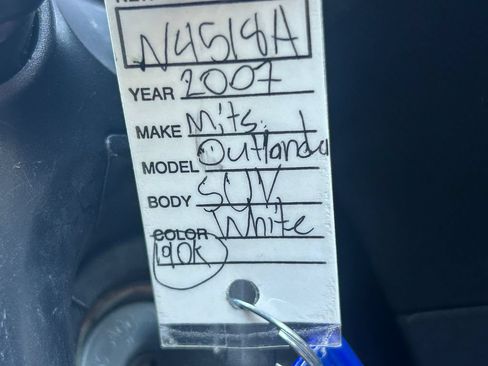 N4518A
YEAR 2007
MAKE Mits.
MODEL Outlander
BODY SUV
COLOR White
190k